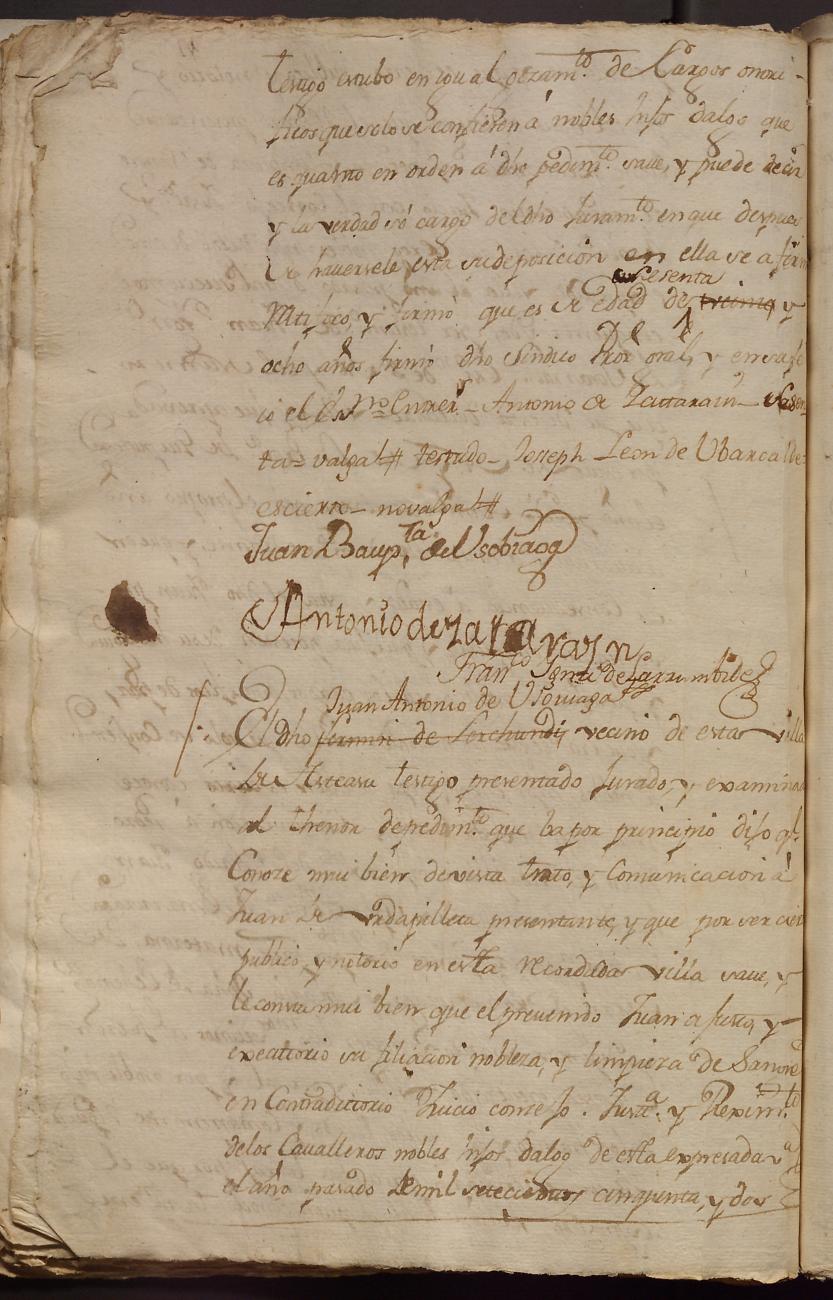 testigo estubo en igual otzam.to de Cargos onori-
ficos que solo se confieren á nobles hijos dalgo que
es quanto en orden á dho pedim.to save, y puede decir
y la verdad só cargo del dho Juram.to en que despues
de haversele esta su deposición en ella se afirmo
sesenta
Ratifico, y firmó que es de edad de treinta y
ocho años firmó dho Sindico Pror. gral, y en su fe
io el Es.no Enter.s - Antonio de Zattarain - Sesen-
ta - valga # testado - Joseph Leon de Ubarcalde
es cierto - no valga #
Juan Baup.ta de Usobiaga
Antonio de Zatarain
Fran.co Ign.o de Larrumbide
Juan Antonio de Usobiaga
El dho fermin de Lerchundi, vecino de esta villa
de Asteasu testigo presentado Jurado, y examinado
al thenor de pedim.to que ba por principio dijo q.e
Conoze mui bien de vista trato, y Comunicacion á
Juan de Urdapilleta presentante, y que por ser cosa
publico, y notorio en esta recordada villa save, y
le consta mui bien que el prevenido Juan ajusto, y
executorio su filiacion nobleza, y limpieza de Sangre
en Contradictorio Juicio conzejo. Just.a y Reximi.to
de los Cavalleros nobles hijos dalgo de esta expresada v.a
el año pasado de mil setecientos cinquenta, y dos